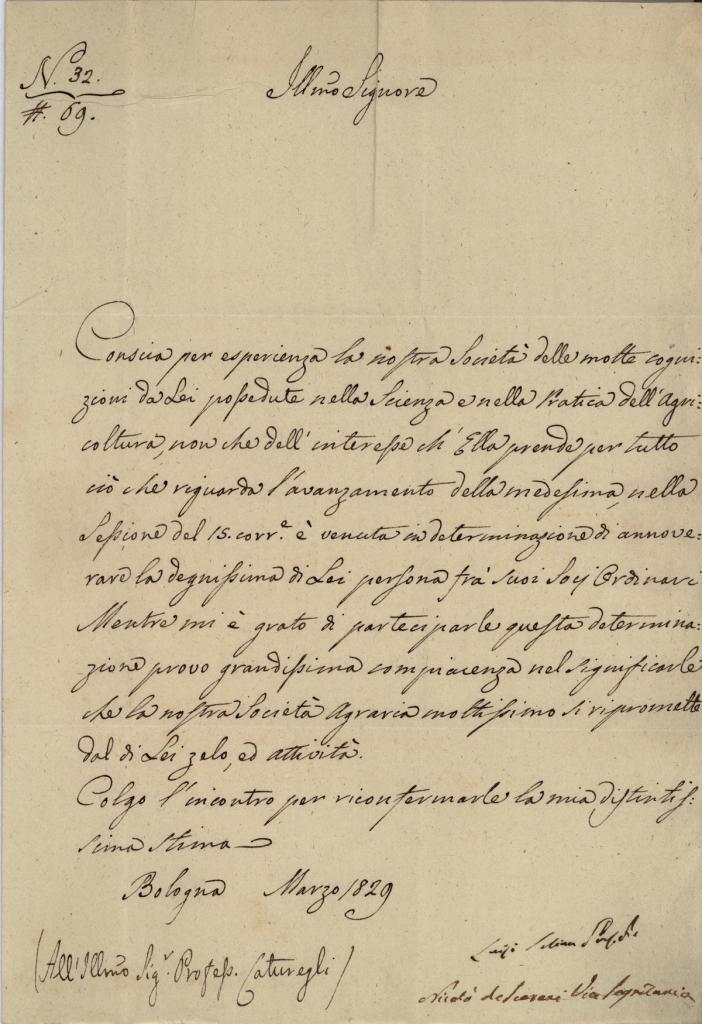 N.° 32.
#. 69.
Illmo Signore
Conscia per esperienza la nostra Società delle molte cogni:
zioni da Lei possedute nella Scienza e nella Pratica dell'Agri:
coltura, non che dell'interesse ch'Ella prende per tutto
ciò che riguarda l'avanzamento della medesima, nella
Sessione del 15. corr.e è venuta in determinazione di annove:
rare la degnissima di Lei persona fra' suoi Socj Ordinari
Mentre mi è grato di parteciparle questa determina:
zione provo grandissima compiacenza nel significarle
che la nostra Società Agraria moltissimo si ripromette
dal di Lei zelo, ed attività.
Colgo l'incontro per riconfermarle la mia distintis:
sima stima
Bologna Marzo 1829
Luigi
(All'Illmo Sig.r Profess. Caturegli)
Vice Segretario